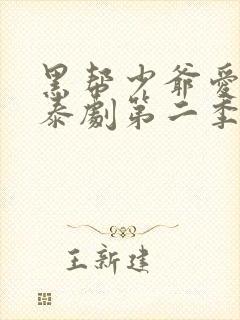 黑帮少爷爱
泰劇第二季
王新建